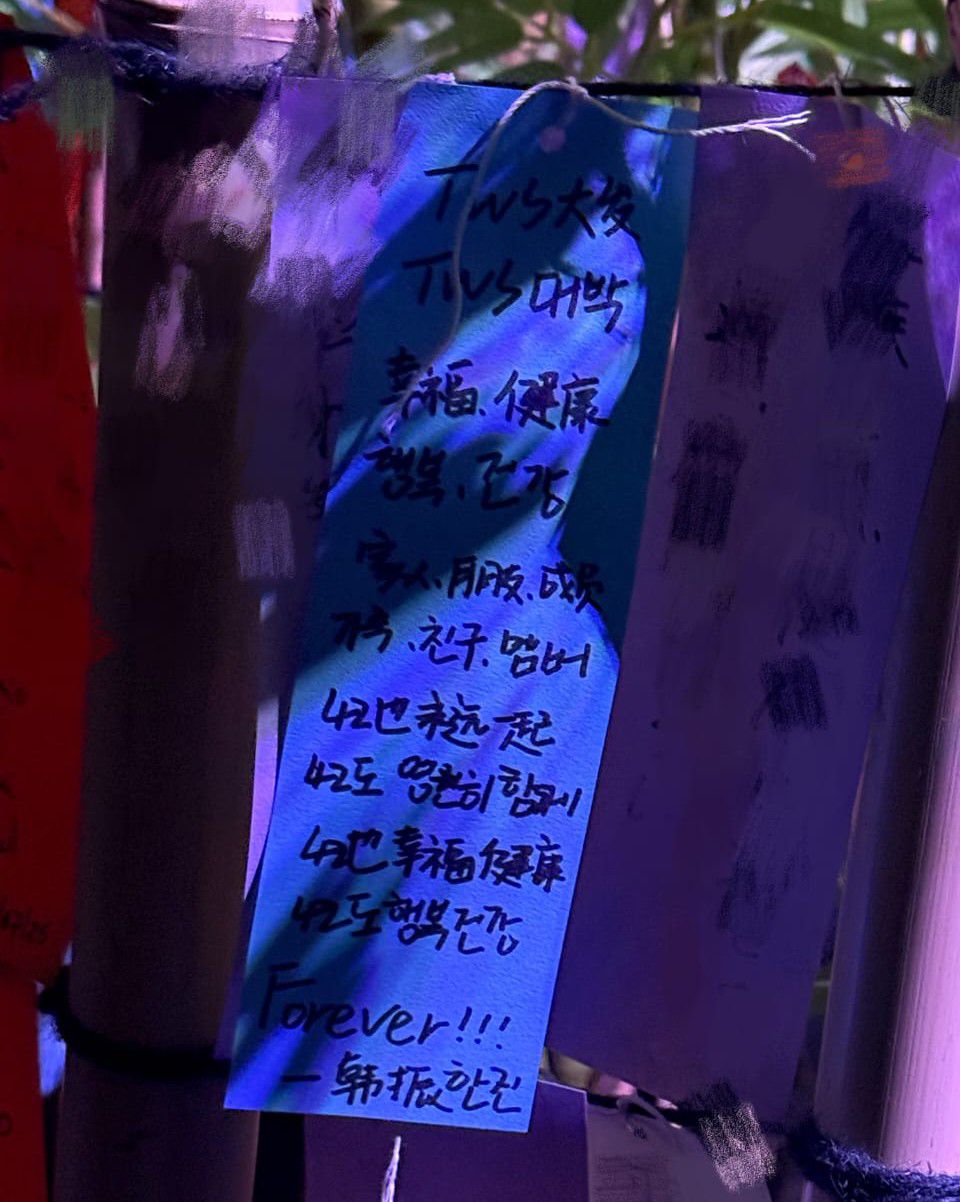 TWS大发
TWS 대박
幸福、健康
행복、건강
家人、朋友、成员
가족、친구、멤버
42也永远一起
42도 영원히 함께
42也幸福健康
42도 행복건강
Forever!!!
一韩振 한진